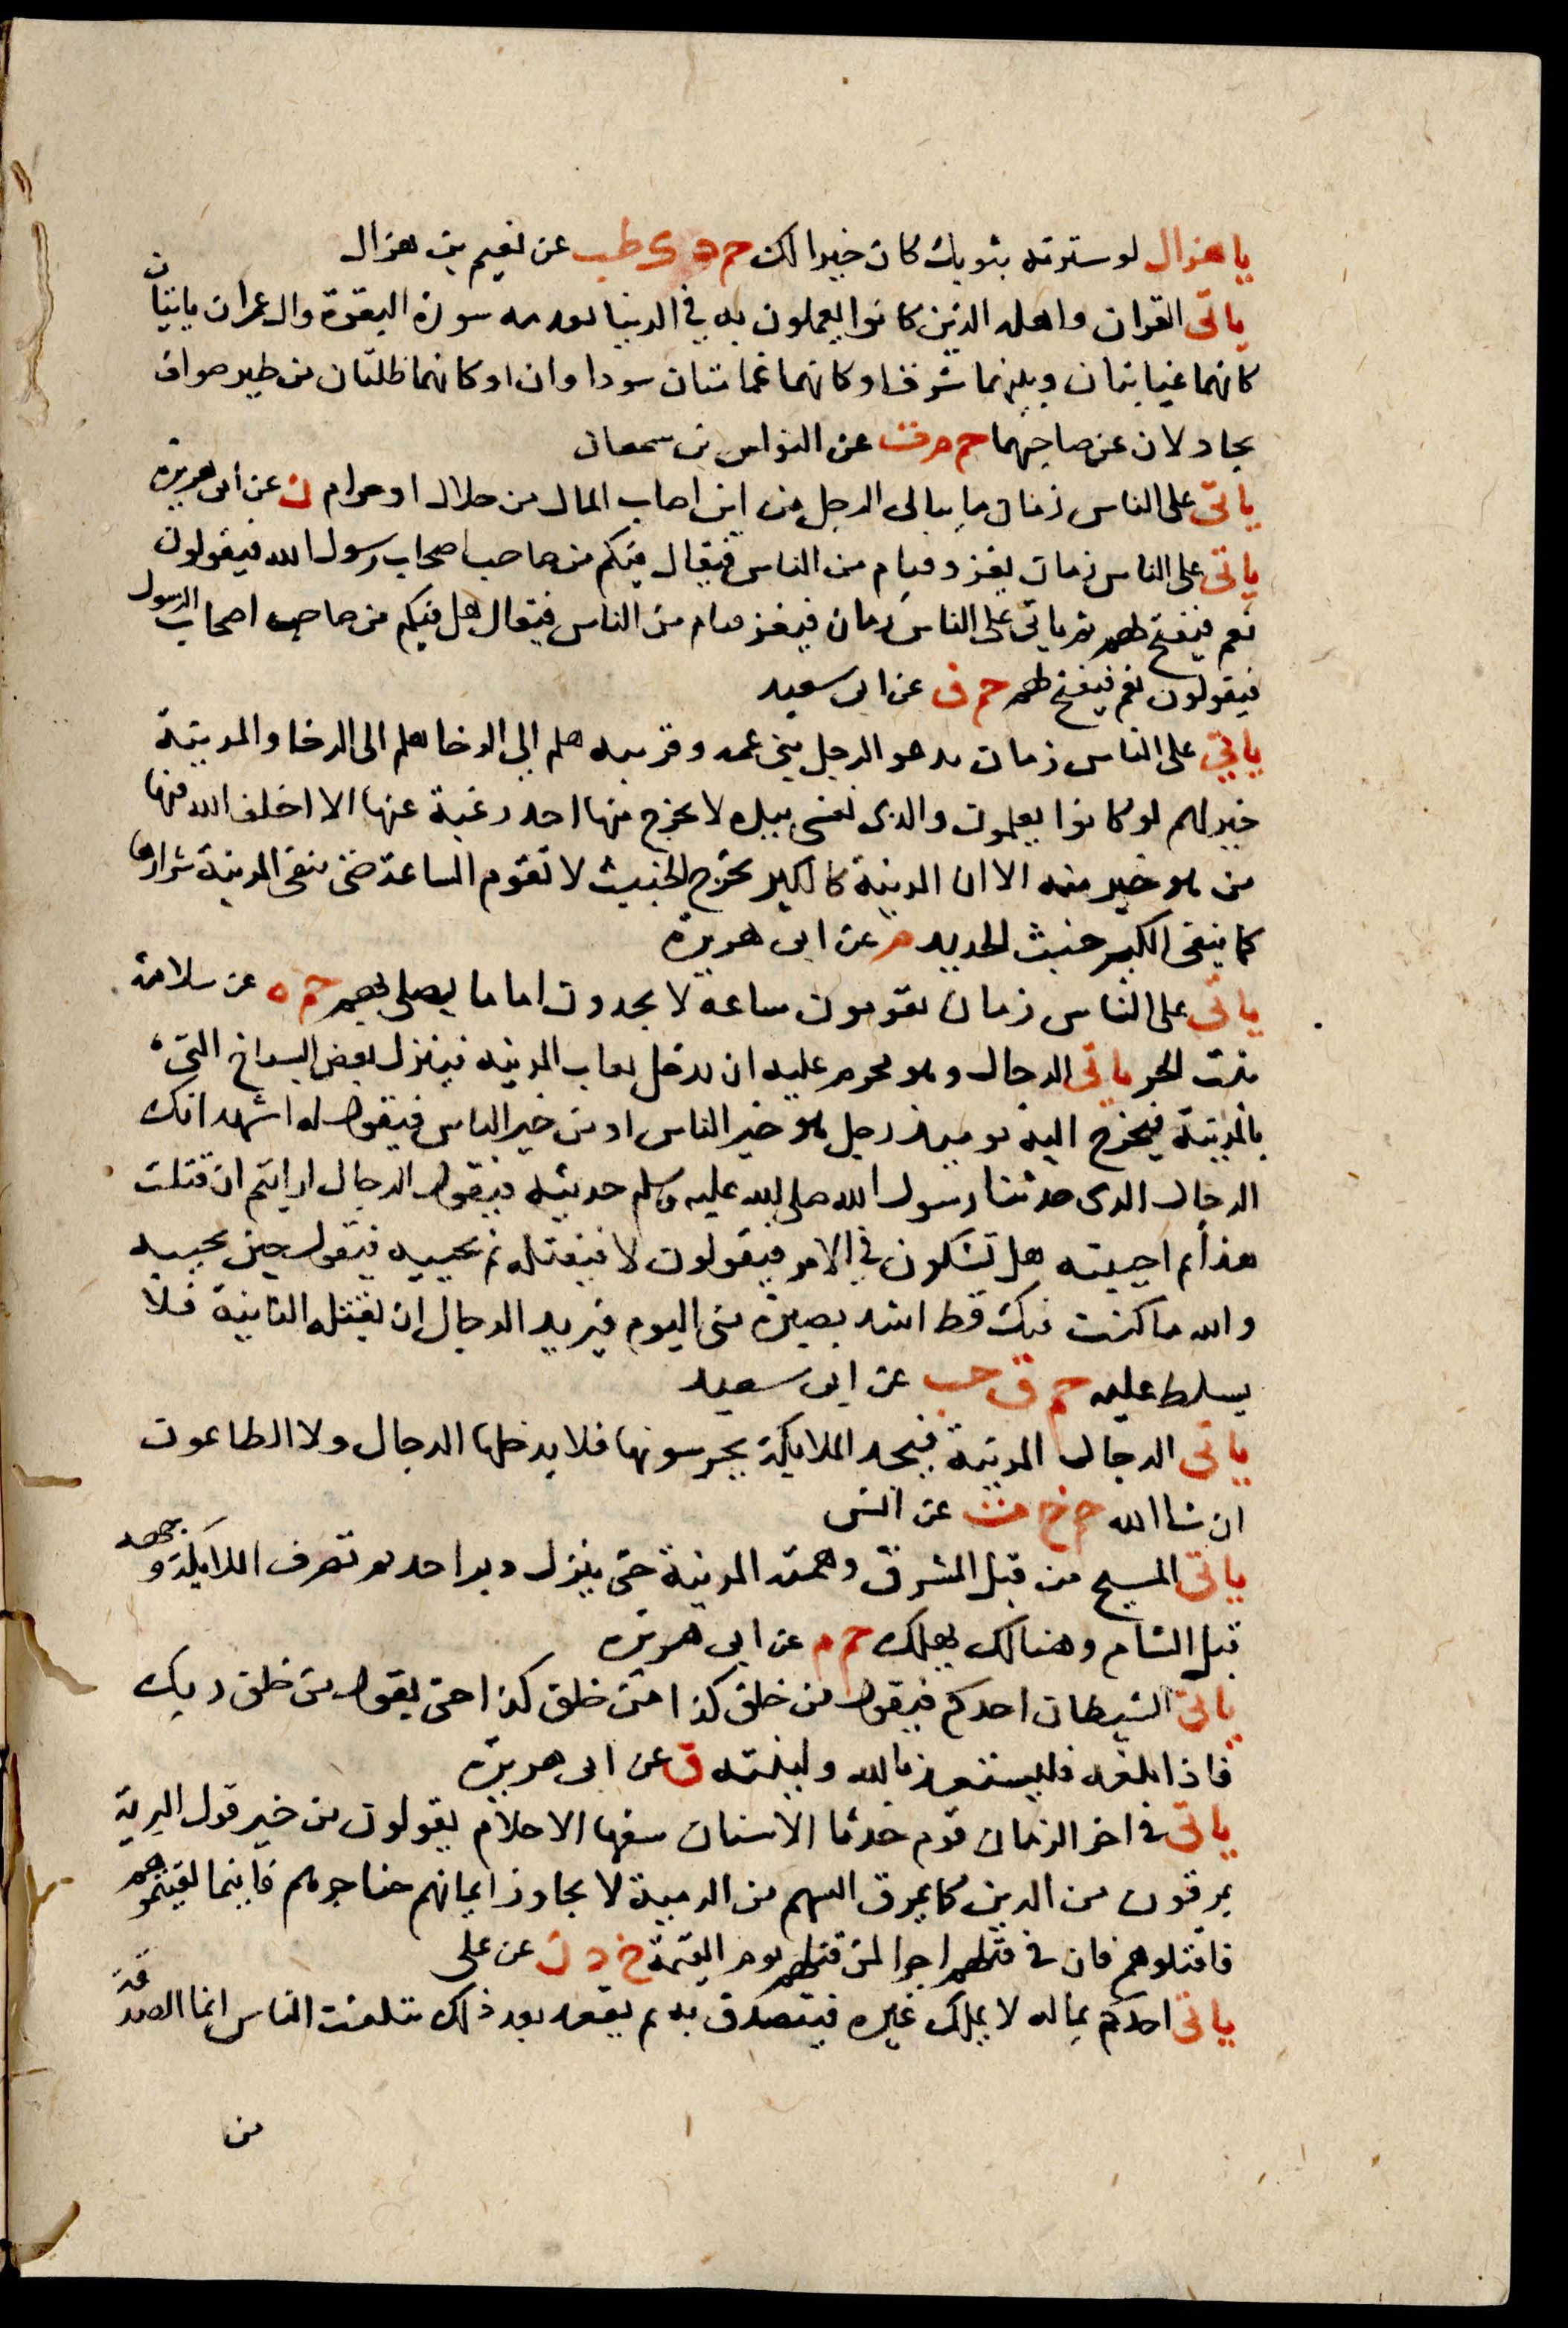 يا هزال لو سترته بثوبك كان خيرا لك حم د ك طب عن نعيم بن هزال
ياتى القران واهله الذين كانوا يعملون به في الدنيا تقدمه سورة البقرة وال عمران ياتيان
كانهما غيابتان وبينهما شرف او كانهما غمامتان سوداوان او كانهما ظلتان من طير صواف
يجادلان عن صاحبهما حم م ت عن النواس بن سمعان
ياتى على الناس زمان ما يبالى الرجل من اين اصاب المال من حلال او حرام ن عن ابى هريرة
ياتى على الناس زمان يغزو فيام من الناس فيقال فيكم من صاحب اصحاب رسول الله فيقولون
نعم فيفتح لهم ثم ياتى على الناس زمان فيغز فيام من الناس فيقال هل فيكم من صاحب اصحاب الرسول
فيقولون نعم فيفتح لهم حم ق عن ابى سعيد
ياتي على الناس زمان يدعو الرجل بنى عمه وقريبه هلم الى الرخا هلم الى الرخا والمدينة
خير لهم لو كانوا يعلمون والذى نفسى بيده لا يخرج منها احد رغبة عنها الا اخلف الله فيها
من هو خير منه الا ان المدينة كالكير تخرج الخبيث لا تقوم الساعة حتى تنفى المدينة شرارها
كما ينفى الكير خبث الحديد م عن ابى هريرة
ياتى على الناس زمان يقومون ساعة لا يجدون اماما يصلى بهم حم ه عن سلامة
بنت الحر ياتى الدجال وهو محرم عليه ان يدخل نقاب المدينة فينزل بعض السباخ التى
بالمدينة فيخرج اليه يوميذ رجل هو خير الناس او من خير الناس فيقول له اشهد انك
الدجال الذى حدثنا رسول الله صلى الله عليه وسلم حديثه فيقول الدجال ارايتم ان قتلت
هذا ثم احييته هل تشكون في الامر فيقولون لا فيقتله ثم يحييه فيقول حين يحييه
والله ما كنت فيك قط اشد بصيرة منى اليوم فيريد الدجال ان يقتله الثانية فلا
يسلط عليه حم ق حب عن ابى سعيد
ياتى الدجال المدينة فيجد الملايكة يحرسونها فلا يدخلها الدجال ولا الطاعون
ان شا الله حم خ ت عن انس
ياتى المسيح من قبل المشرق وهمته المدينة حتى ينزل دبر احد ثم تصرف الملايكة وجهه
قبل الشام وهنالك يهلك حم م عن ابى هريرة
ياتى الشيطان احدكم فيقول من خلق كذا من خلق كذا حتى يقول من خلق ربك
فاذا بلغه فليستعذ بالله ولينته ق عن ابى هريرة
ياتى في اخر الزمان قوم حدثا الاسنان سفها الاحلام يقولون من خير قول البرية
يمرقون من الدين كما يمرق السهم من الرمية لا يجاوز ايمانهم حناجرهم فاينما لقيتموهم
فاقتلوهم فان في قتلهم اجرا لمن قتلهم يوم القيمة خ د ن عن على
ياتى احدكم بماله لا يملك غيره فيتصدق به ثم يقعد بعد ذلك يتكفف الناس انما الصدقة
من